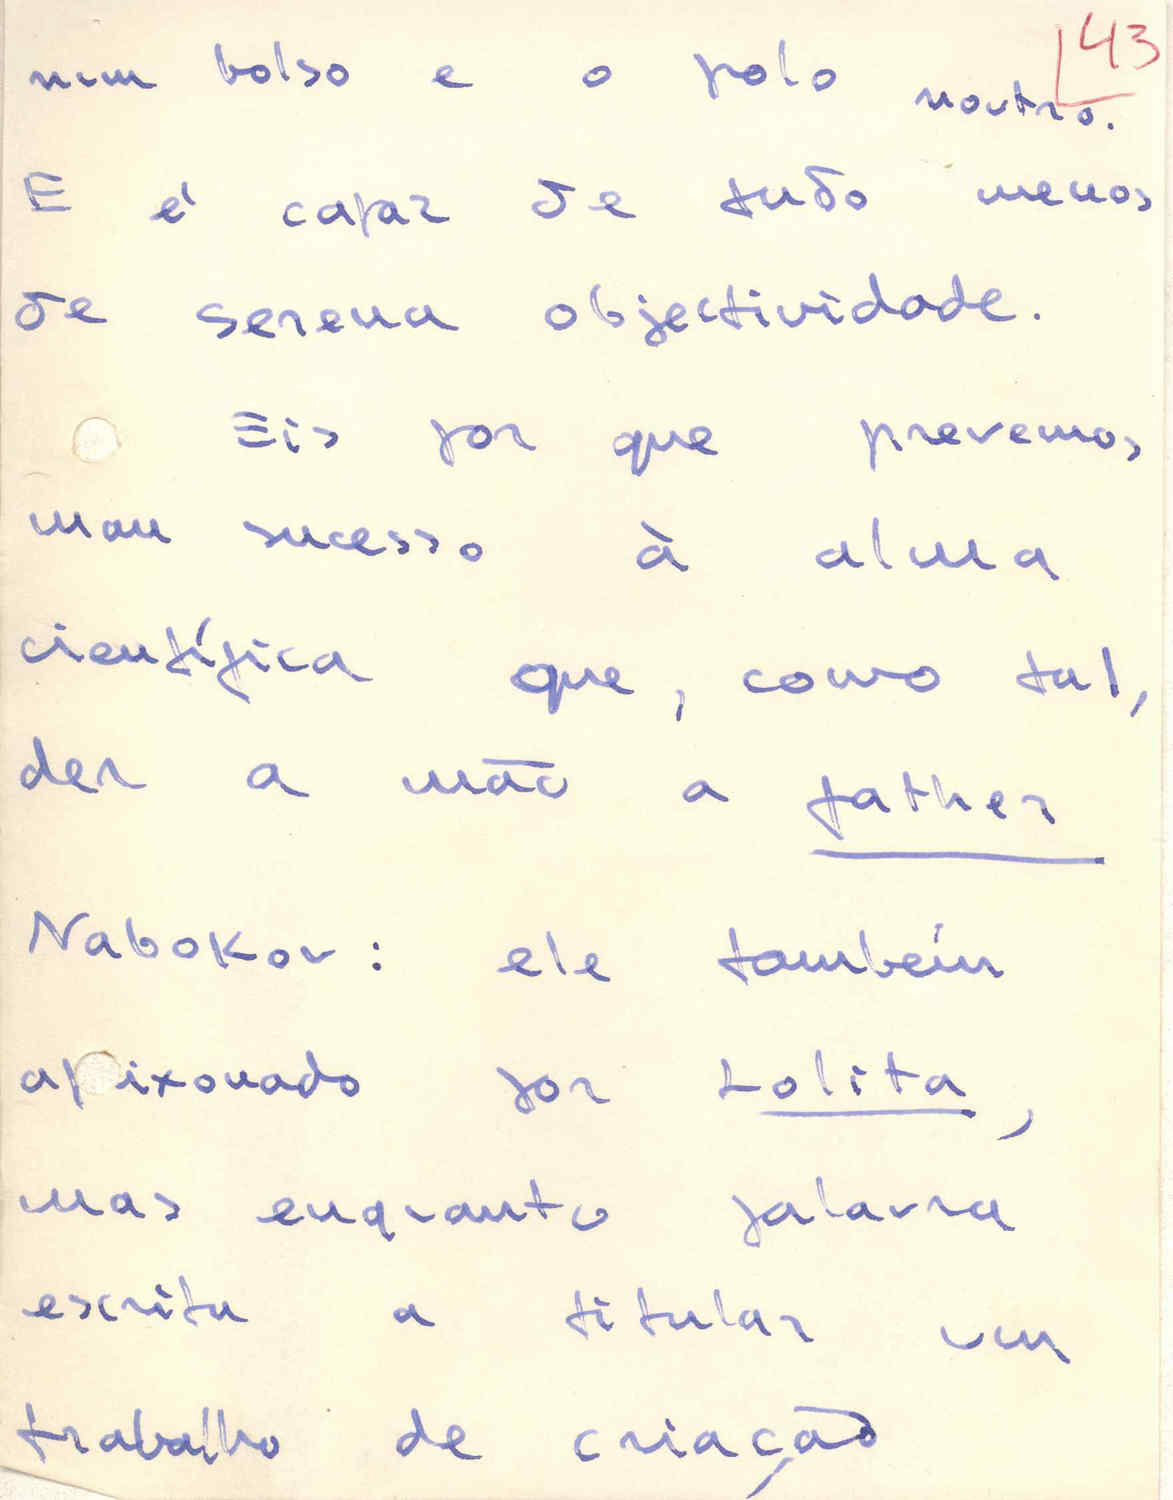 43
num bolso e o polo noutro.
E é capaz de tudo menos
de serena objectividade.
Eis por que prevemos
mau sucesso à alma
científica que, como tal,
der a mão a father
Nabokov: ele também
apaixonado por Lolita,
mas enquanto palavra
escrita a titular um
trabalho de criação